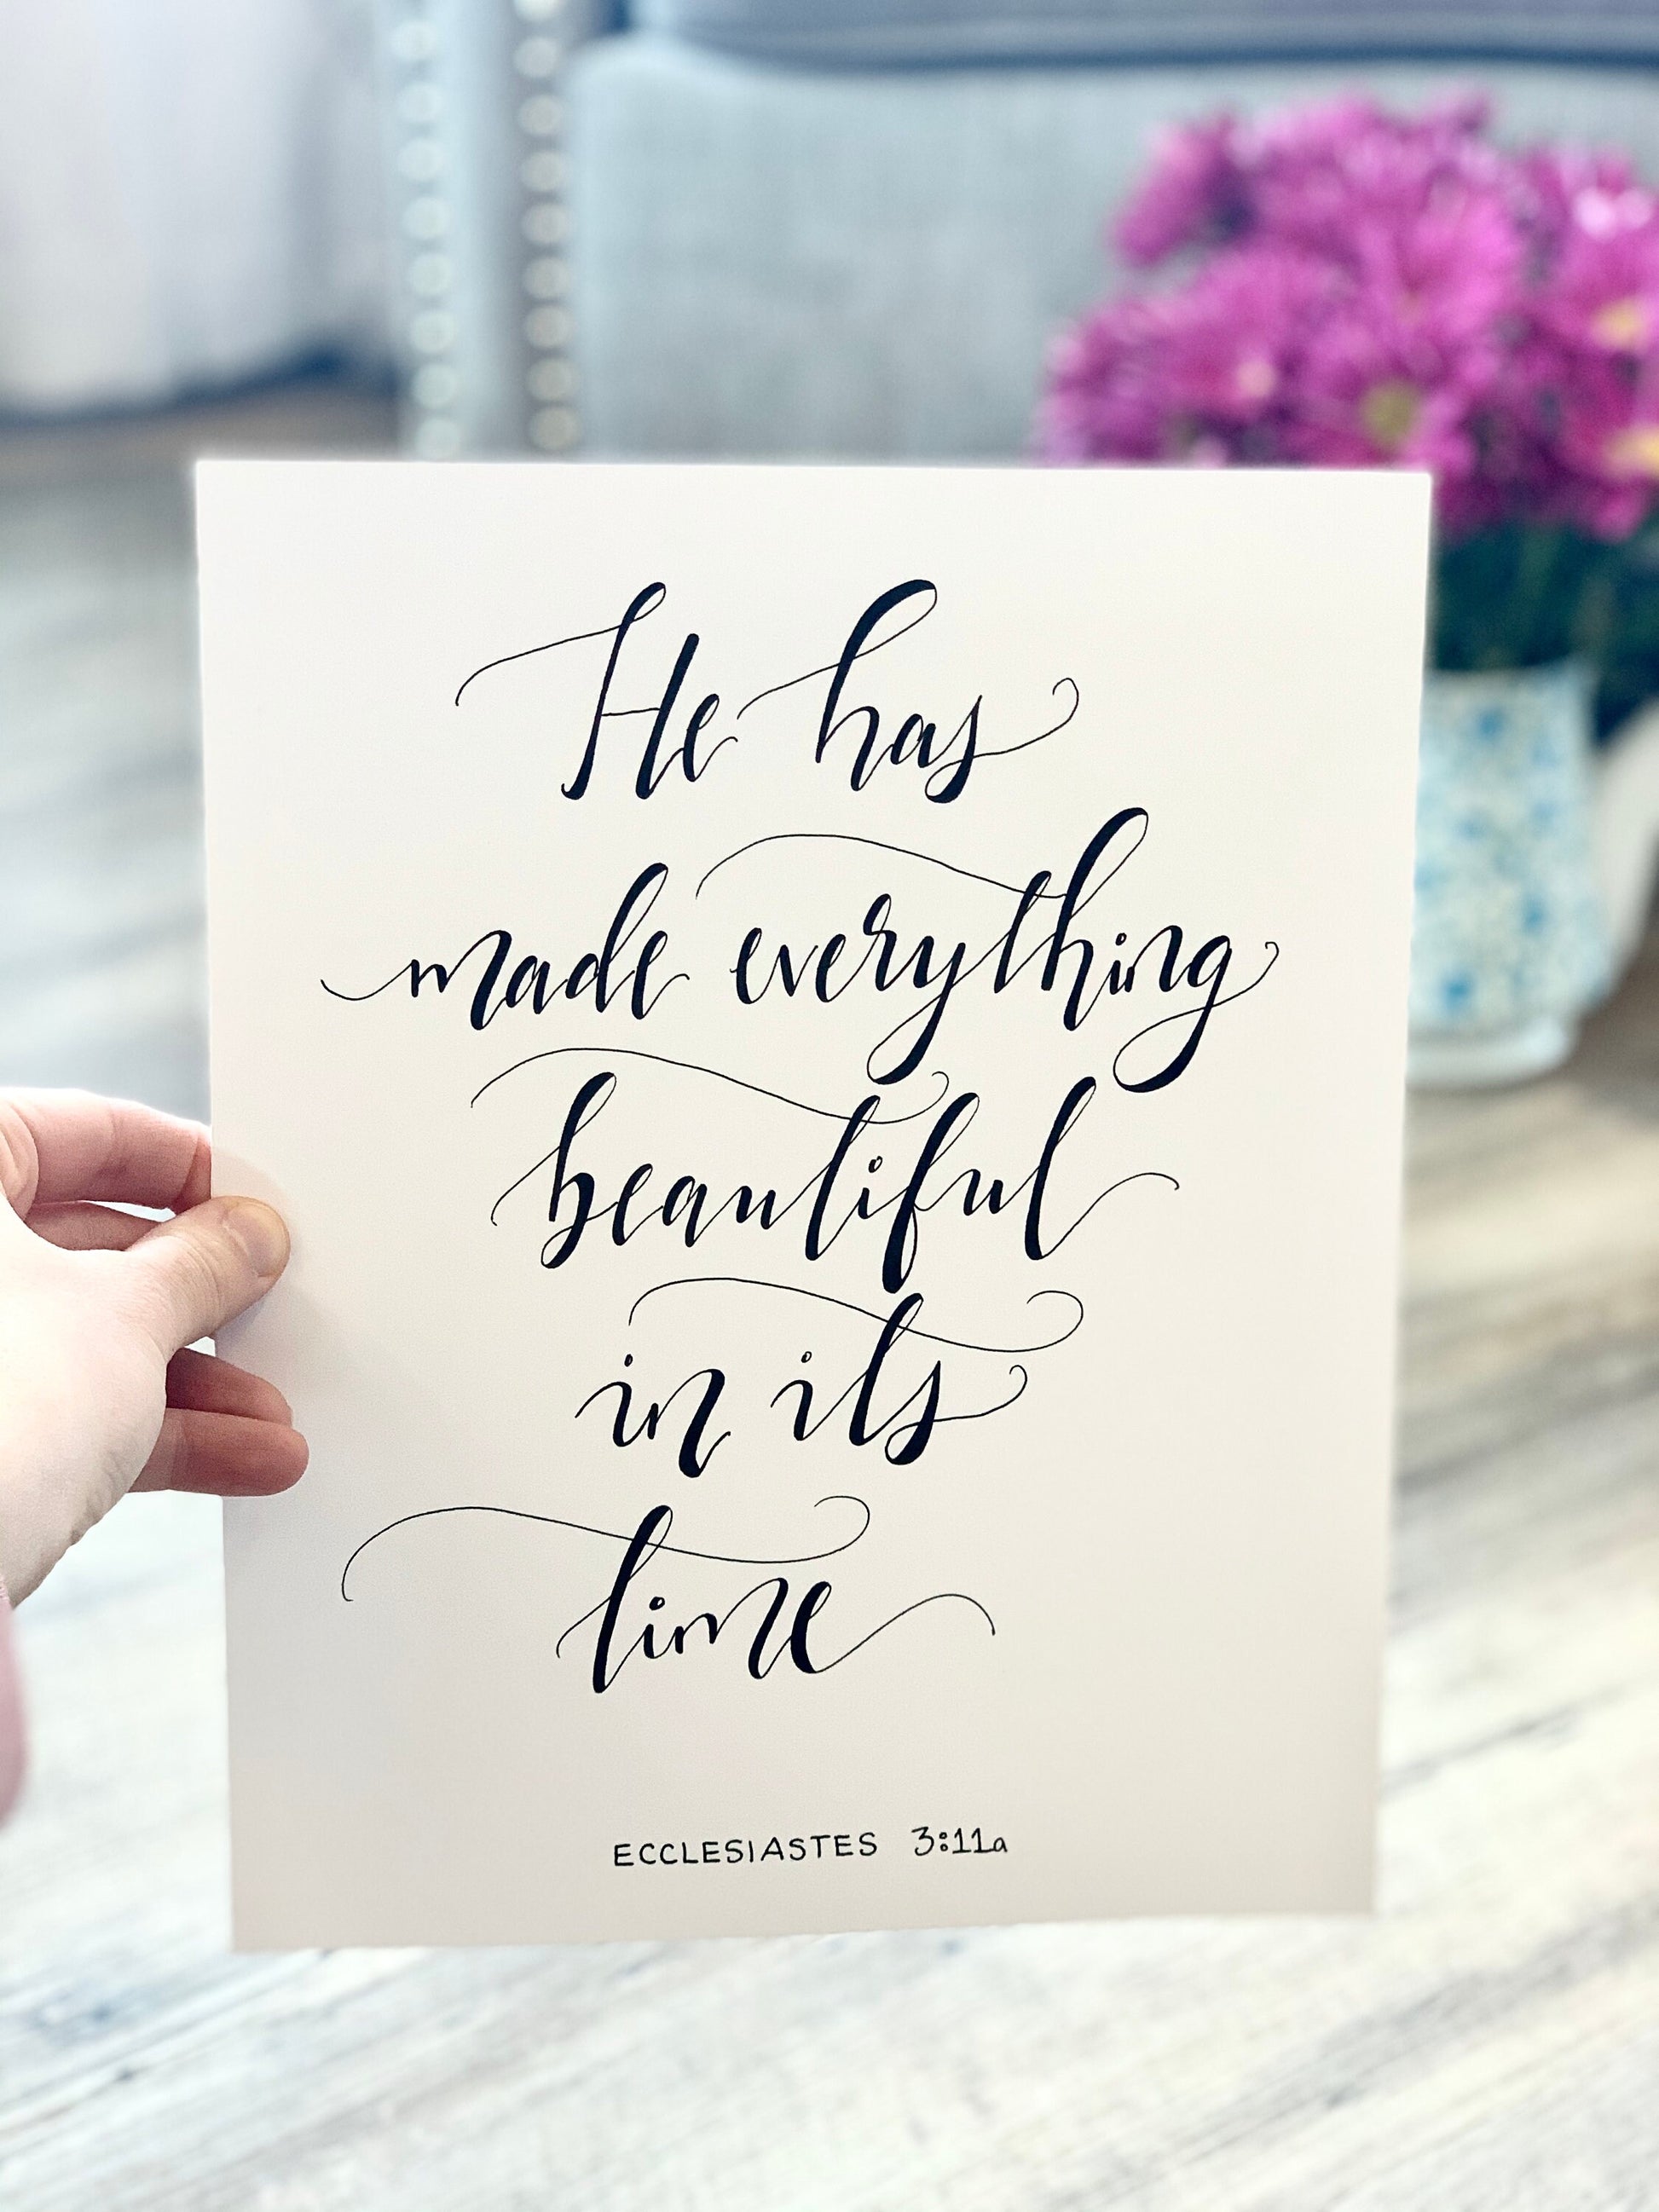 He has
made everything
beautiful
in its
time
ECCLESIASTES 3:11a